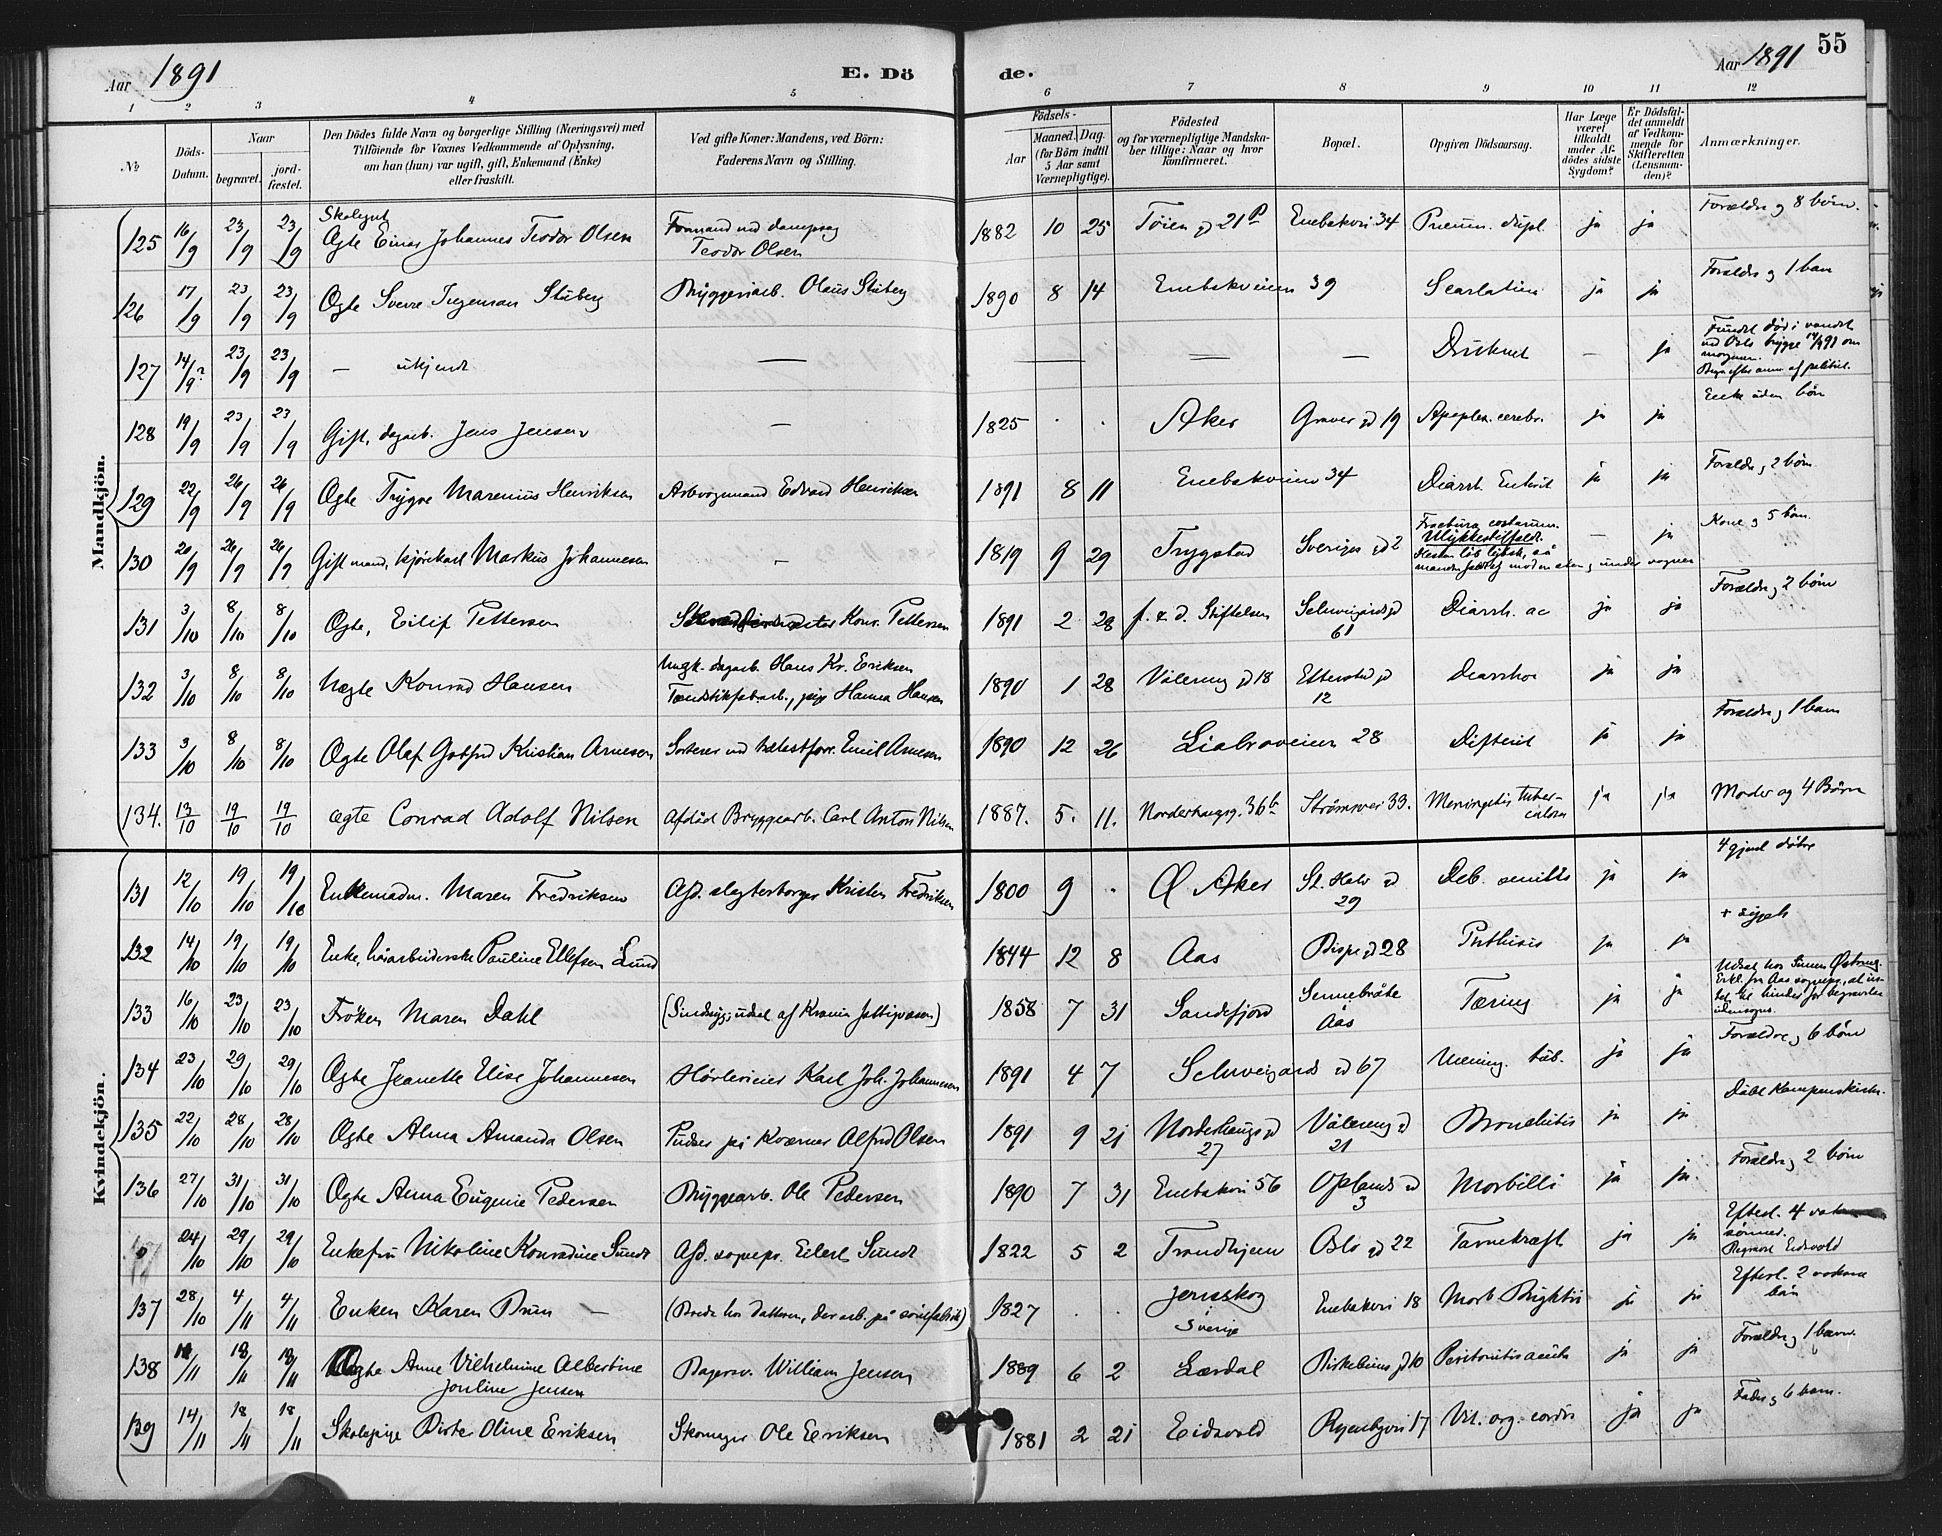 Aar 1891
E. Dö
de.
Aar 1891
55
1 2 3 4 5 6 7 8 9 10 11 12
№
Döds-Datum.
Naar
begravet.
jord-fæstet.
Den Dödes fulde Navn og borgerlige Stilling (Næringsvei) med
Tilföiende for Voxnes Vedkommende af Oplysning,
om han (hun) var ugift, gift, Enkemand (Enke)
eller fraskilt.
Ved gifte Koner: Mandens, ved Börn:
Faderens Navn og Stilling.
Födsels-
Aar
Maaned. Dag.
(for Börn indtil
5 Aar samt
Værnepligtige).
Födested
og for værnepligtige Mandska-
ber tillige: Naar og hvor
konfirmeret.
Bopæl.
Opgiven Dödsaarsag.
Har Læge
været
tilkaldt
under Af-
dödes sidste
Sygdom?
Er Dödsfal-
det anmeldt
af Vedkom-
mende for
Skifteretten
(Lensman-
den)?
Anmærkninger.
Mandkjön.
Skolegut
125 16/9 23/9 23/9 Ægte Einar Johannes Teodor Olsen Formand ved dampsag Teodor Olsen 1882 10 25 Tøien gd 21 Enebakvei 34 Pneum. dupl. ja ja Forældre og 8 børn.
126 17/9 23/9 23/9 Ægte Sverre Ingeman Stuberg Bryggeriarb. Olaus Stuberg 1890 8 14 Enebakveien 39 Scarlatina ja ja Forældre og 1 barn
127 14/9? 23/9 23/9 — ukjendt — — — — Druknet — ja Fundet død i vandet ved Oslo brygge 14/9 91 om morgenen.
128 19/9 23/9 23/9 Gift, dagarb. Jens Jensen — 1825 . . Aker Graver gd 19 Apoplex. cerebr. ja ja Enke uden børn
129 22/9 26/9 26/9 Ægte Trygve Marenius Henriksen Arbvognmand Edvard Henriksen 1891 8 11 Enebakveien 34 Diarrh. Enterit ja ja Forældre og 2 børn
130 20/9 26/9 26/9 Gift mand, kjørekarl Markus Johannesen - 1819 9 29 Trygstad Sveriges gd 2 Fractura costarum. Ulykkestilfælde. — ja Kone og 5 børn.
131 3/10 8/10 8/10 Ægte, Eilif Pettersen Konr. Pettersen 1891 2 28 f. & d. Stiftelsen Schweigårds gd 61 Diarrh. ac ja ja Forældre og 2 børn
132 3/10 8/10 8/10 Uægte Konrad Hansen Ungk. dagarb. Hans Kr. Eriksen Tændstikfab.arb., pige Hanna Hansen 1890 1 28 Vålereng gd 18 Etterstad gd 12 Diarrhoe ja ja
133 3/10 8/10 8/10 Ægte Olaf Gotfred Kristian Arnesen Sorterer ved Emil Arnesen 1890 12 26 Liabroveien 28 Difterit ja ja Forældre og 1 barn
134. 13/10 19/10 19/10 ægte Conrad Adolf Nilsen Afdöd Bryggearb. Carl Anton Nilsen 1887. 5. 11. Norderhaugsg. 36b Strømsvei 33. Meningitis tuber-culosa ja ja Moder og 4 Børn
Kvindekjön.
131 12/10 19/10 19/10 Enkemadm. Maren Fredriksen Afd. slagterborger Kristen Fredriksen 1800 9 . Ø Aker St. Halv gd 29 Deb. senilis ja ja 4 gjenl døtre
132 14/10 19/10 19/10 Enke, håarbeiderske Pauline Ellefsen Lund 1844 12 8 Aas Bispe gd 28 Phthisis ja ja
133 16/10 23/10 23/10 Frøken Maren Dahl (Sindssyg; udsat af Krania fattigvæsen) 1858 7 31 Sandefjord Sennebråte Aas Tæring ja ja
134 23/10 29/10 29/10 Ægte Jeanette Elise Johannesen Karl Joh. Johannesen 1891 4 7 Schweigårds gd 67 Mening. tub. ja ja Forældre og 6 børn
135 22/10 28/10 28/10 Ægte Alma Amanda Olsen Pudser på Kværner Alfred Olsen 1891 9 21 Norderhaugs gd 27 Vålereng gd 21 Bronchitis ja ja Døbt Kampens kirke.
136 27/10 31/10 31/10 Ægte Anna Eugenie Pedersen Bryggearb. Ole Pedersen 1890 7 31 Enebakvei 56 Oplands gd 3 Morbilli ja ja. Forældre og 2 børn
24/10 29/10 29/10 Enkefru Nikoline Konradine Sundt Afd. sognepr. Eilert Sundt 1822 5 2 Trondhjem Oslo gd 22 Tarmekræft ja ja Efterl. 4 sønner. Eidsvold
137 28/10 4/11 4/11 Enken Karen Brun — (Boede hos datteren, der arb. på ) 1827 . . Jernskog Sverige Enebakvei 18 Morb Brightii ja ja Efterl. 2 voksne børn
138 11/11 18/11 18/11 Ægte Anne Vilhelmine Albertine Jonline Jensen Bagersv. William Jensen 1889 6 2 Lærdal Birkelunds gd 10 Peritonitis acuta ja ja Forældre og 1 barn.
139 14/11 18/11 18/11 Skolepige Birte Oline Eriksen Skomager Ole Eriksen 1881 2 21 Eidsvold Ryenbgvei 17 Vit. org. cordis ja ja Fader og 6 barn.